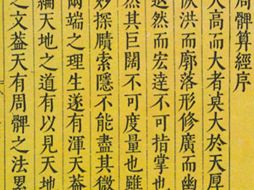 周髀算經序
夫高而大者莫大於天厚
恢洪而廓落形修廣而幽
退然而宏遠不可指掌也
然其巨闊不可度量也雖
妙探賾索隱不能盡其微
兩端之理生遂有渾天葢
綸天地之道有以見天地
之文葢天有周髀之法累